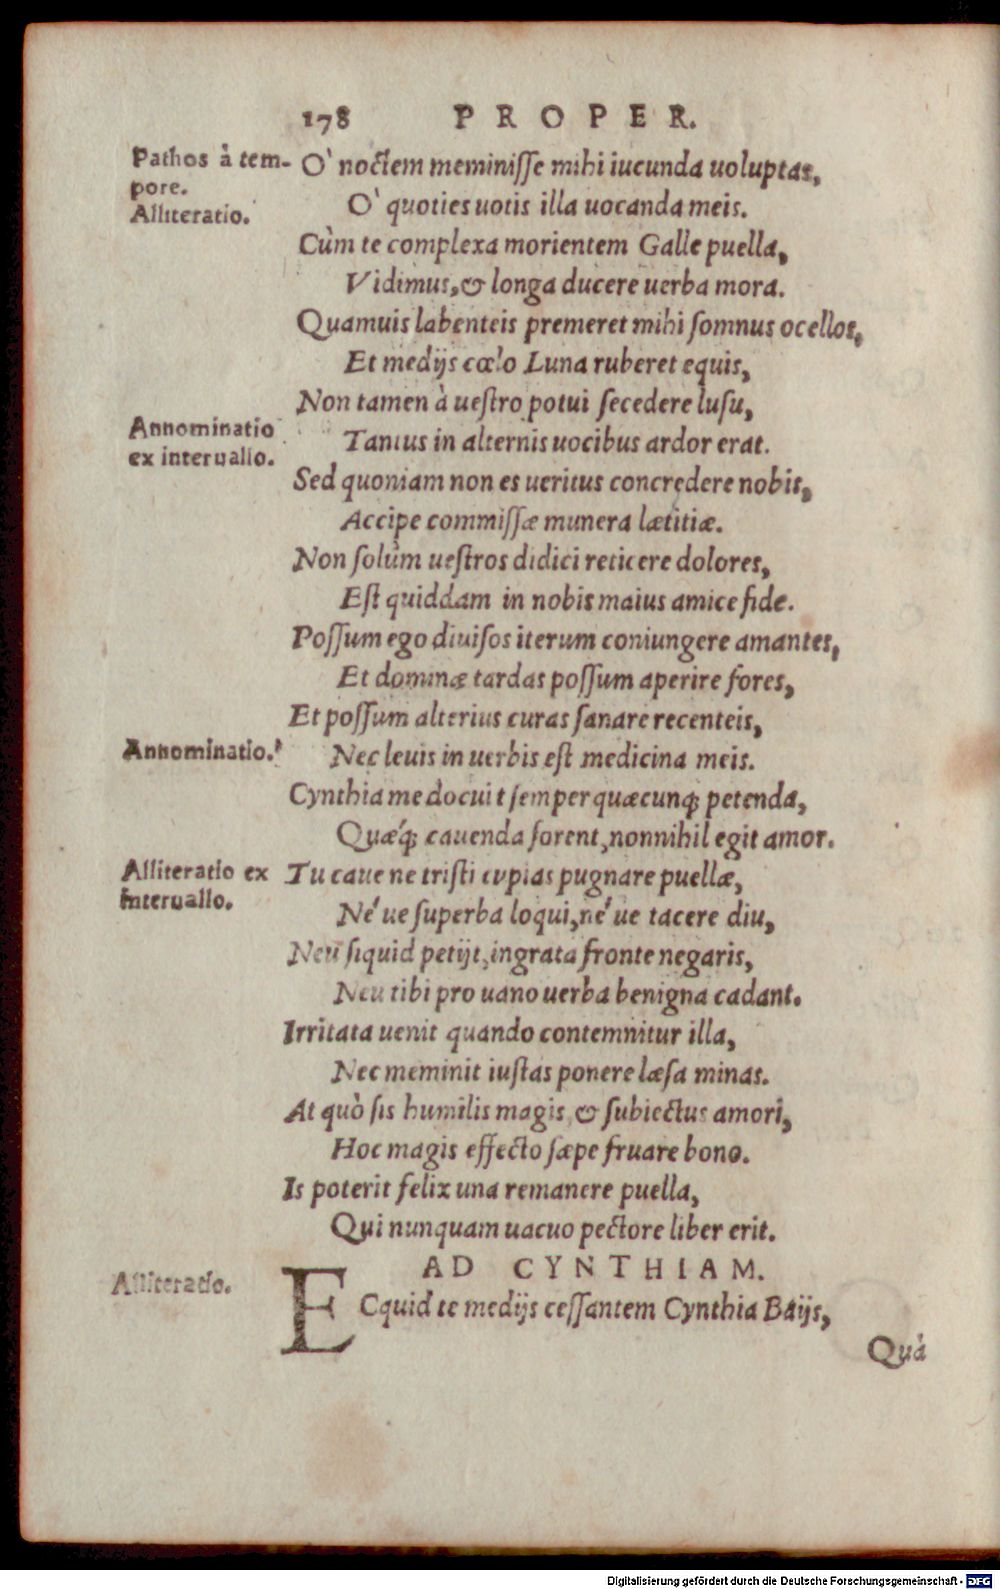 178 PROPER.
Pathos à tem-
pore.
Alliteratio.
O' noctem meminisse mihi iucunda uoluptas,
O' quoties uotis illa uocanda meis.
Cùm te complexa morientem Galle puella,
Vidimus, & longa ducere uerba mora.
Quamuis labenteis premeret mihi somnus ocellos,
Et medijs cœlo Luna ruberet equis,
Non tamen à uestro potui secedere lusu,
Annominatio
ex interuallo.
Tantus in alternis uocibus ardor erat.
Sed quoniam non es ueritus concredere nobis,
Accipe commissæ munera lætitiæ.
Non solùm uestros didici reticere dolores,
Est quiddam in nobis maius amice fide.
Possum ego diuisos iterum coniungere amantes,
Et dominæ tardas possum aperire fores,
Et possum alterius curas sanare recenteis,
Annominatio.
Nec leuis in uerbis est medicina meis.
Cynthia me docuit semper quæcunq; petenda,
Quǽq; cauenda forent, nonnihil egit amor.
Alliteratio ex
interuallo.
Tu caue ne tristi cupias pugnare puellæ,
Né ue superba loqui, né ue tacere diu,
Neu siquid petijt, ingrata fronte negaris,
Neu tibi pro uano uerba benigna cadant.
Irritata uenit quando contemnitur illa,
Nec meminit iustas ponere læsa minas.
At quò sis humilis magis, & subiectus amori,
Hoc magis effecto sæpe fruare bono.
Is poterit felix una remanere puella,
Qui nunquam uacuo pectore liber erit.
AD CYNTHIAM.
Alliteratio.
ECquid te medijs cessantem Cynthia Baijs,
Quà
Digitalisierung gefördert durch die Deutsche Forschungsgemeinschaft - DFG